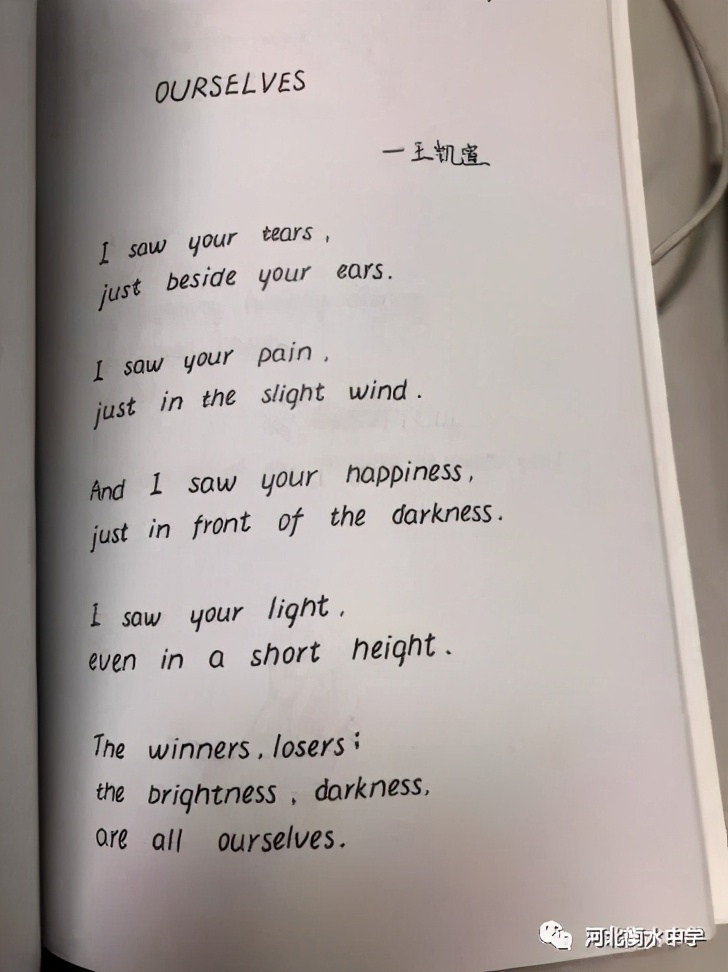 OURSELVES
一王凯萱
I saw your tears,
just beside your ears.
I saw your pain,
just in the slight wind.
And I saw your happiness,
just in front of the darkness.
I saw your light,
even in a short height.
The winners, losers;
the brightness, darkness,
are all ourselves.
河北衡水中学